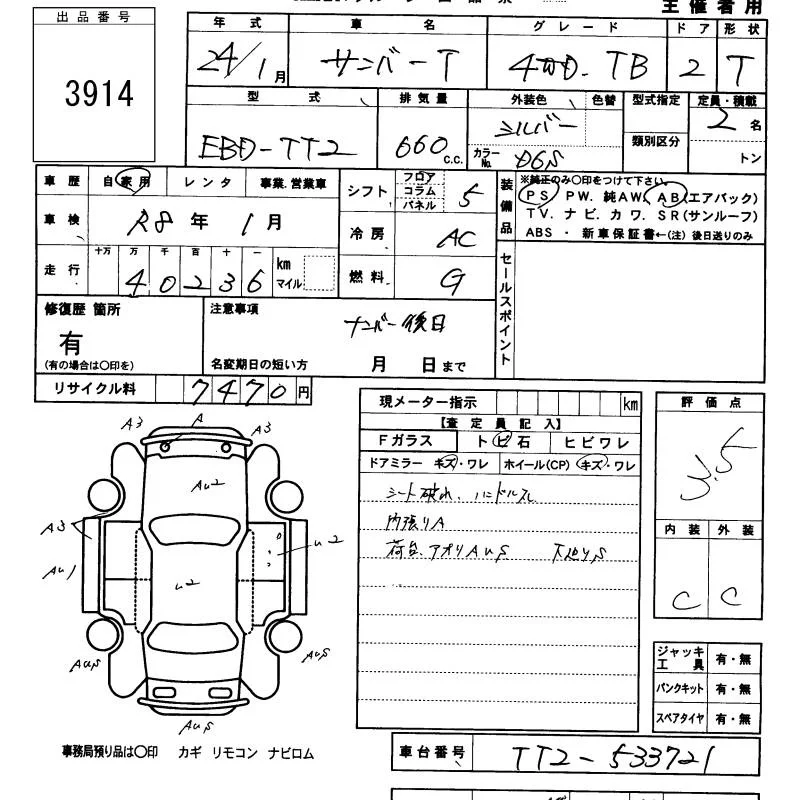 主催者用
出品番号
3914
年式 車名 グレード ドア 形状
24/1月 サンバーT 4WD.TB 2 T
型式 排気量 外装色 色替 型式指定 定員・積載
EBD-TT2 660 c.c. シルバー 類別区分 2名
カラーNo. D6S トン
車歴 自家用 レンタ 事業.営業車
シフト フロア コラム パネル 5
装備品 ※純正のみ〇印をつけて下さい。
PS PW. 純AW. AB(エアバック)
TV. ナビ. カワ. SR(サンルーフ)
ABS ・ 新車保証書←(注) 後日送りのみ
車検 R8年1月
冷房 AC
走行 十万 万 千 百 十 一
40236 km マイル
燃料 G
セールスポイント
修復歴 箇所
有
(有の場合は〇印を)
注意事項
ナンバー後日
名変期日の短い方 月 日まで
リサイクル料 7470円
現メーター指示 km
【査定員記入】
Fガラス ト ビ 石 ヒビワレ
ドアミラー キズ・ワレ ホイール(CP) キズ・ワレ
シート破れ. ハンドルスレ
内張りA
荷台.アオリAUS 下回りS
評価点
3.5
内装 外装
C C
A3 A A3
AU2
A3
U2
AU1
U2
AUS AUS
AUS
ジャッキ 工具 有・無
パンクキット 有・無
スペアタイヤ 有・無
事務局預り品は〇印 カギ リモコン ナビロム
車台番号 TT2-533721